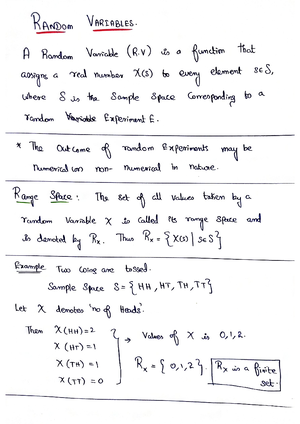 RANDOM VARIABLES.
A Random Variable (R.V) is a function that
assigns a real number X(s) to every element s∈S,
where S is the Sample Space Corresponding to a
random Experiment E.
* The Outcome of random Experiments may be
Numerical (or) non-numerical in nature.
Range Space: The set of all values taken by a
random variable X is called its range space and
is denoted by Rx. Thus Rx = {X(s) | s∈S}
Example Two coins are tossed.
Sample Space S = {HH, HT, TH, TT}
Let X denotes 'no of Heads'.
Then X(HH)=2
X(HT)=1
X(TH)=1
X(TT)=0
→ Values of X is 0,1,2.
Rx = {0,1,2}. Rx is a finite
set.